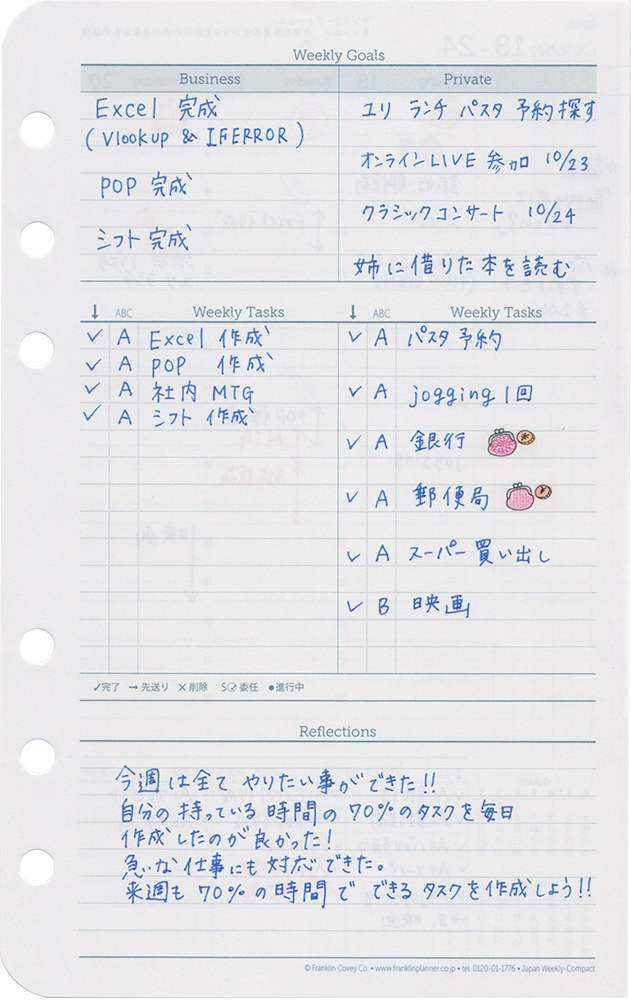 Weekly Goals
Business Private
Excel 完成
(Vlookup & IFERROR)
POP 完成
シフト完成
ユリ ランチ パスタ 予約探す
オンラインLIVE 参加 10/23
クラシックコンサート 10/24
姉に借りた本を読む
↓ ABC Weekly Tasks
✓ A Excel 作成
✓ A POP 作成
✓ A 社内 MTG
✓ A シフト 作成
↓ ABC Weekly Tasks
✓ A パスタ予約
✓ A jogging 1回
✓ A 銀行
✓ A 郵便局
✓ A スーパー買い出し
✓ B 映画
✓完了 →先送り ×削除 S✓委任 ●進行中
Reflections
今週は全て やりたい事ができた!!
自分の持っている時間の70%のタスクを毎日
作成したのが良かった!
急いな仕事にも対応できた。
来週も70%の時間で できるタスクを作成しよう!!
© Franklin Covey Co. • www.franklinplanner.co.jp • tel. 0120-01-1776 • Japan Weekly-Compact